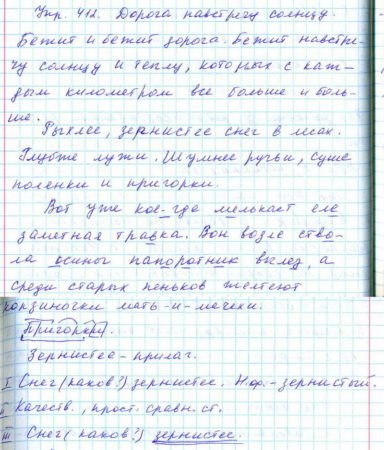 Упр. 412. Дорога навстречу солнцу.
Бежит и бежит дорога. Бежит навстре-
чу солнцу и теплу, которых с каж-
дым километром все больше и боль-
ше.
Рыхлее, зернистее снег в лесах.
Глубже лужи. Шумнее ручьи, суше
поленки и пригорки.
Вот уже кое-где мелькает еле
заметная травка. Вон возле ство-
ла осины папоротник вылез, а
среди старых пеньков желтеют
корзиночки мать-и-мачехи.
Пригорки.
Зернистее - прилаг.
I Снег (каков?) зернистее. Н.ф.- зернистый.
II Качеств., прост. сравн. ст.
III Снег (каков?) зернистее.